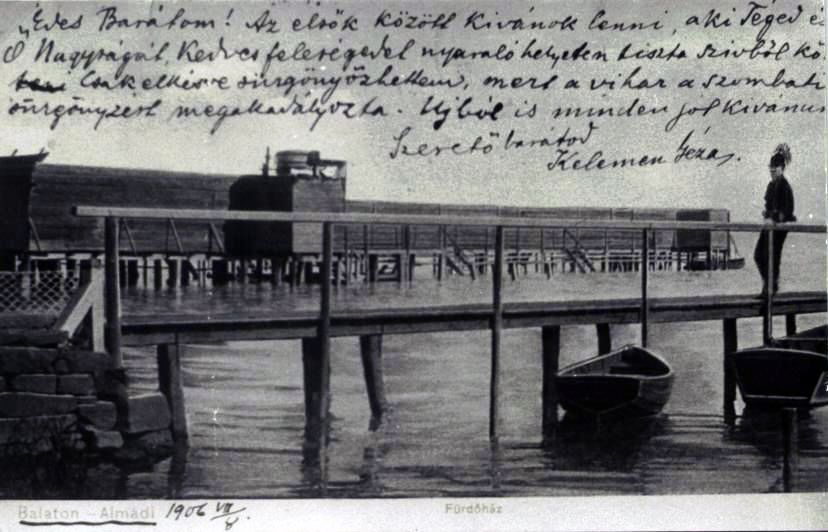 „Édes Barátom! Az elsők között kivánok lenni, aki Téged é
Ő Nagyságát, Kedves feleségedet nyaralóhelyeten tiszta szivből kö
Csak elkésve sürgönyözhettem, mert a vihar a szombati
sürgönyzést megakadályozta. Ujból is minden jót kivánun
Szerető barátod
Kelemen Géza.
Balaton-Almádi 1906 VII/8.
Fürdőház